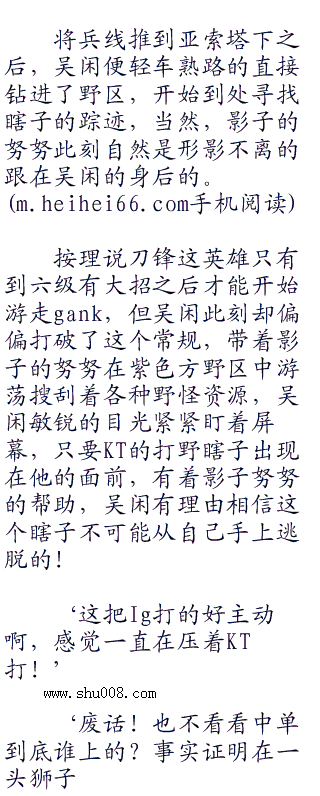 将兵线推到亚索塔下之
后，吴闲便轻车熟路的直接
钻进了野区，开始到处寻找
瞎子的踪迹，当然，影子的
努努此刻自然是形影不离的
跟在吴闲的身后的。
(m.heihei66.com手机阅读)
按理说刀锋这英雄只有
到六级有大招之后才能开始
游走gank，但吴闲此刻却偏
偏打破了这个常规，带着影
子的努努在紫色方野区中游
荡搜刮着各种野怪资源，吴
闲敏锐的目光紧紧盯着屏
幕，只要KT的打野瞎子出现
在他的面前，有着影子努努
的帮助，吴闲有理由相信这
个瞎子不可能从自己手上逃
脱的！
‘这把Ig打的好主动
啊，感觉一直在压着KT
打！’
www.shu008.com
‘废话！也不看看中单
到底谁上的？事实证明在一
头狮子